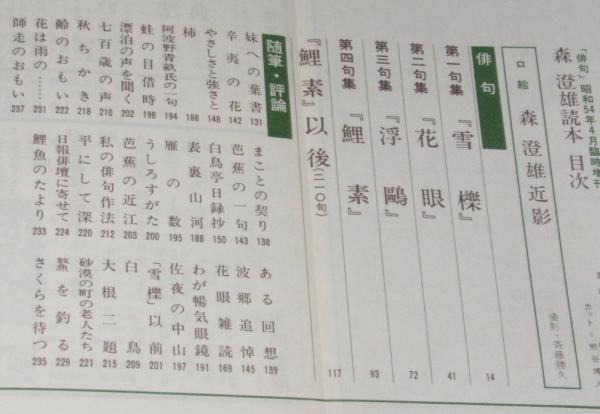 「俳句」昭和54年4月臨時増刊
森澄雄読本 目次
口絵 森澄雄近影
撮影・斉藤勝久
カット＝熊谷博人
俳句
第一句集『雪櫟』 14
第二句集『花眼』 41
第三句集『浮鷗』 72
第四句集『鯉素』 93
『鯉素』以後(二一〇句) 117
随筆・評論
妹への葉書 131
辛夷の花 142
やさしさと強さと 148
柿 188
阿波野青畝氏の一句 194
蛙の目借時 198
漂泊の声を聞く 202
七百歳の声 210
秋ちかき 218
齢のおもい 222
花は雨の…… 231
師走のおもい 237
まことの契り 138
芭蕉の一句 143
白鳥亭日録抄 150
表裏山河 188
雁の数 195
うしろすがた 200
芭蕉の近江 203
私の俳句作法 212
平にして深 220
日報俳壇に寄せて 224
鯉魚のたより 233
ある回想 139
波郷追悼 145
花眼雑読 169
わが暢気眼鏡 191
佐夜の中山 197
「雪櫟」以前 201
白鳥 209
大根二題 215
砂漠の町の老人たち 221
鰲を釣る 229
さくらを待つ 235